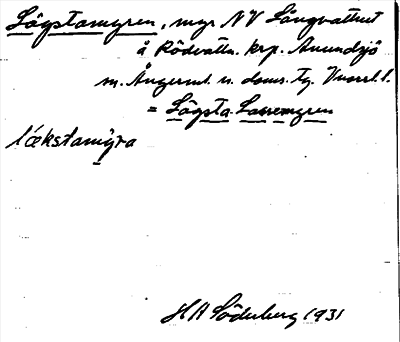 Lögstamyren, myr NV Långvattnet
å Rödvattn. krp. Anundsjö
m. Ångerml. n. doms. tg. Vnorrl. l.
= Lögsta-Lassemyren
lækstamy̱ra
HA Söderberg 1931